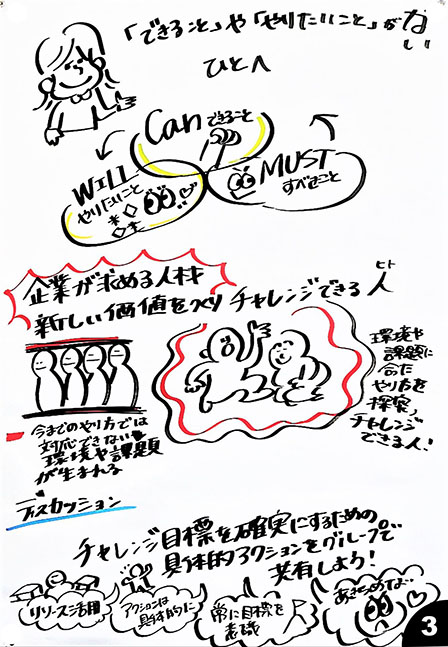 「できること」や「やりたいこと」がない
ひとへ
Can できること
WILL
やりたいこと
MUST
すべきこと
企業が求める人材
新しい価値をつくりチャレンジできる人
ヒト
今までのやり方では
対応できない
環境や課題
が生まれる
環境や
課題に
合った
やり方を
探索、
チャレンジ
できる人!
ディスカッション
チャレンジ目標を確実にするための
具体的アクションをグループで
共有しよう!
リソース活用
アクションは
具体的に
常に目標を
意識
あきらめるな…
3